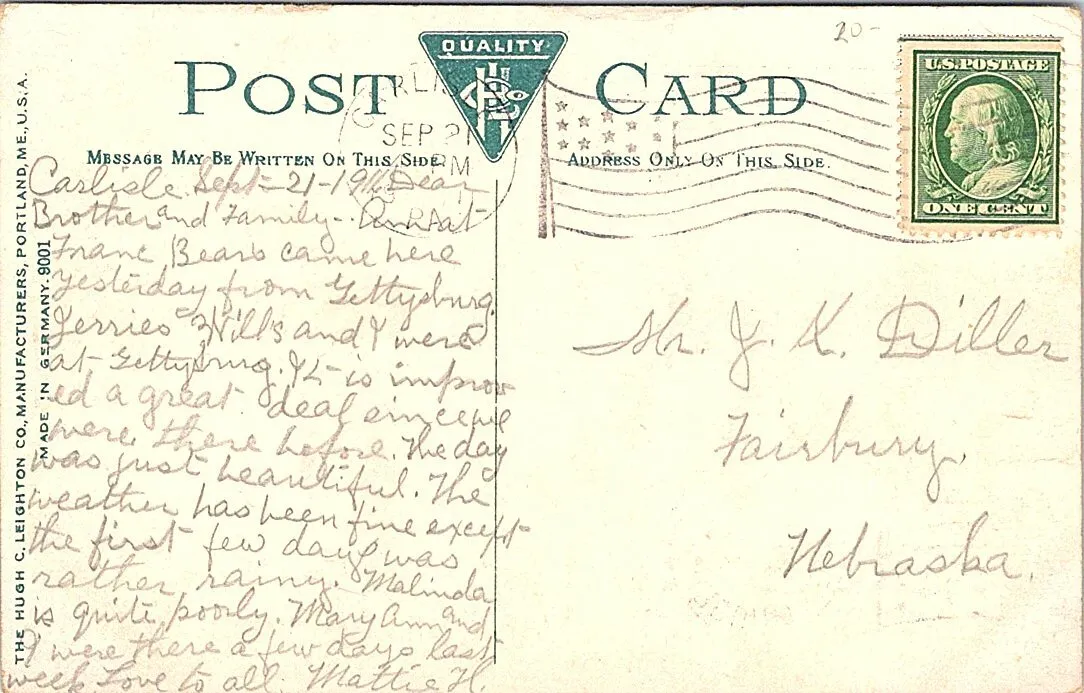 20-
QUALITY
POST CARD
SEP 21
PM
MESSAGE MAY BE WRITTEN ON THIS SIDE.
ADDRESS ONLY ON THIS SIDE.
U.S. POSTAGE
ONE CENT
THE HUGH C. LEIGHTON CO., MANUFACTURERS, PORTLAND, ME., U.S.A.
MADE IN GERMANY. 9001
Carlisle Sept-21-191 Dear
Brother and Family - at
Franc Bears came here
yesterday from Gettysburg.
Jerries Wills and I were
at Gettysburg. It is improv
ed a great deal since we
were there before. The day
was just beautiful. The
weather has been fine except
the first few days was
rather rainy. Malinda
is quite poorly. Mary Ann and
I were there a few days last
week Love to all. Mattie H.
Mr. J. K. Diller
Fairbury,
Nebraska.